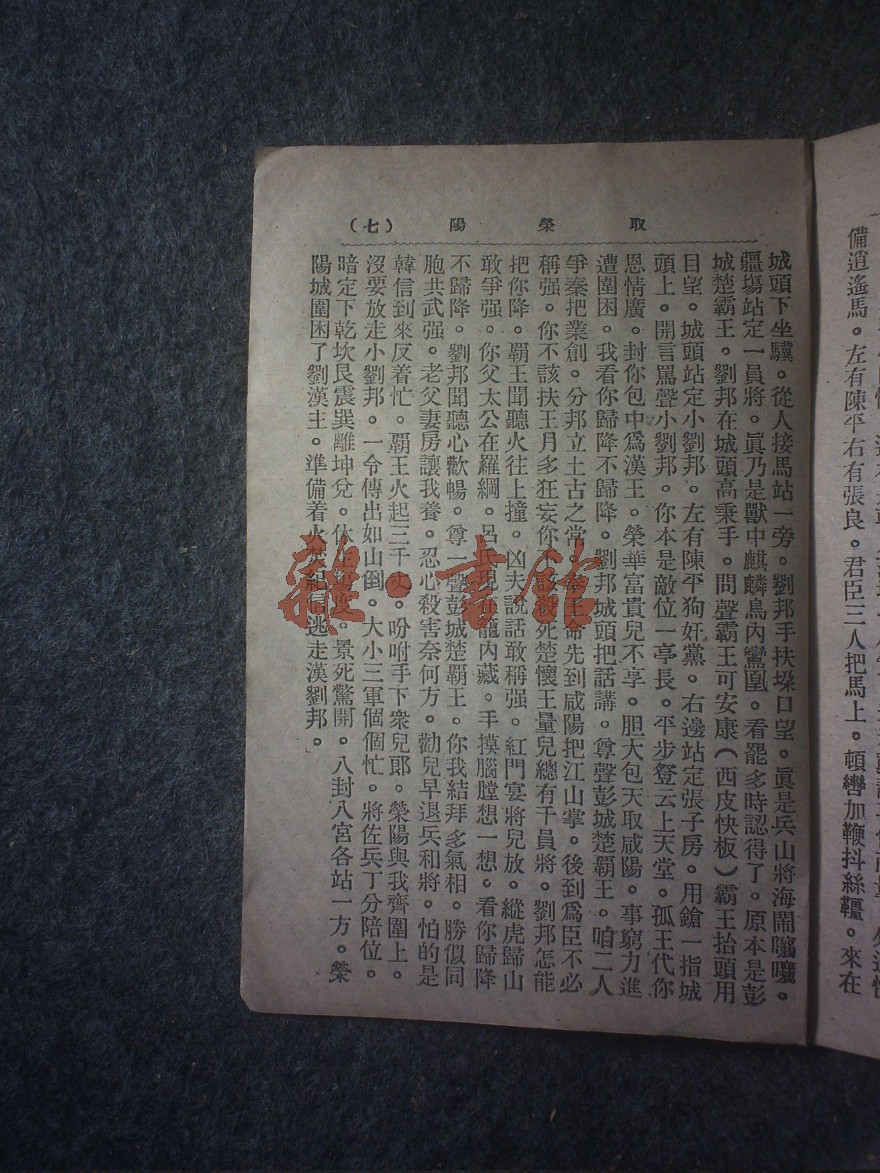 備逍遙馬。左有陳平右有張良。君臣三人把馬上。頓轡加鞭抖絲韁。來在
取滎陽（七）
城頭下坐驥。從人接馬站一旁。劉邦手扶垛口望。眞是兵山將海鬧嚷嚷。
疆塲站定一員將。眞乃是獸中麒麟鳥內鸞凰。看罷多時認得了。原本是彭
城楚霸王。劉邦在城頭高秉手。問聲霸王可安康（西皮快板）霸王抬頭用
目望。城頭站定小劉邦。左有陳平狗奸黨。右邊站定張子房。用鎗一指城
頭上。開言罵聲小劉邦。你本是敵位一亭長。平步登云上天堂。孤王代你
恩情廣。封你包中爲漢王。榮華富貴兒不享。胆大包天取咸陽。事窮力進
遭圍困。我看你歸降不歸降。劉邦城頭把話講。尊聲彭城楚霸王。咱二人
爭秦把業創。分邦立土古之常。奉王命先到咸陽把江山掌。後到爲臣不必
稱强。你不該扶王月多狂妄你不該殺死楚懷王量兒總有千員將。劉邦怎能
把你降。霸王聞聽火往上撞。凶夫說話敢稱强。紅門宴將兒放。縱虎歸山
敢爭强。你父太公在羅綱。呂氏現在籠內藏。手摸腦膛想一想。看你歸降
不歸降。劉邦聞聽心歡暢。尊一聲彭城楚霸王。你我結拜多氣相。勝似同
胞共武强。老父妻房讓我養。忍心殺害奈何方。勸兒早退兵和將。怕的是
韓信到來反着忙。霸王火起三千丈。吩咐手下衆兒郎。滎陽與我齊圍上。
沒要放走小劉邦。一令傳出如山倒。大小三軍個個忙。將佐兵丁分陪位。
暗定下乾坎艮震巽離坤兌。休生傷度。景死驚開。八封八宮各站一方。滎
陽城圍困了劉漢主。準備着火焚紀信逃走漢劉邦。
雜·書館